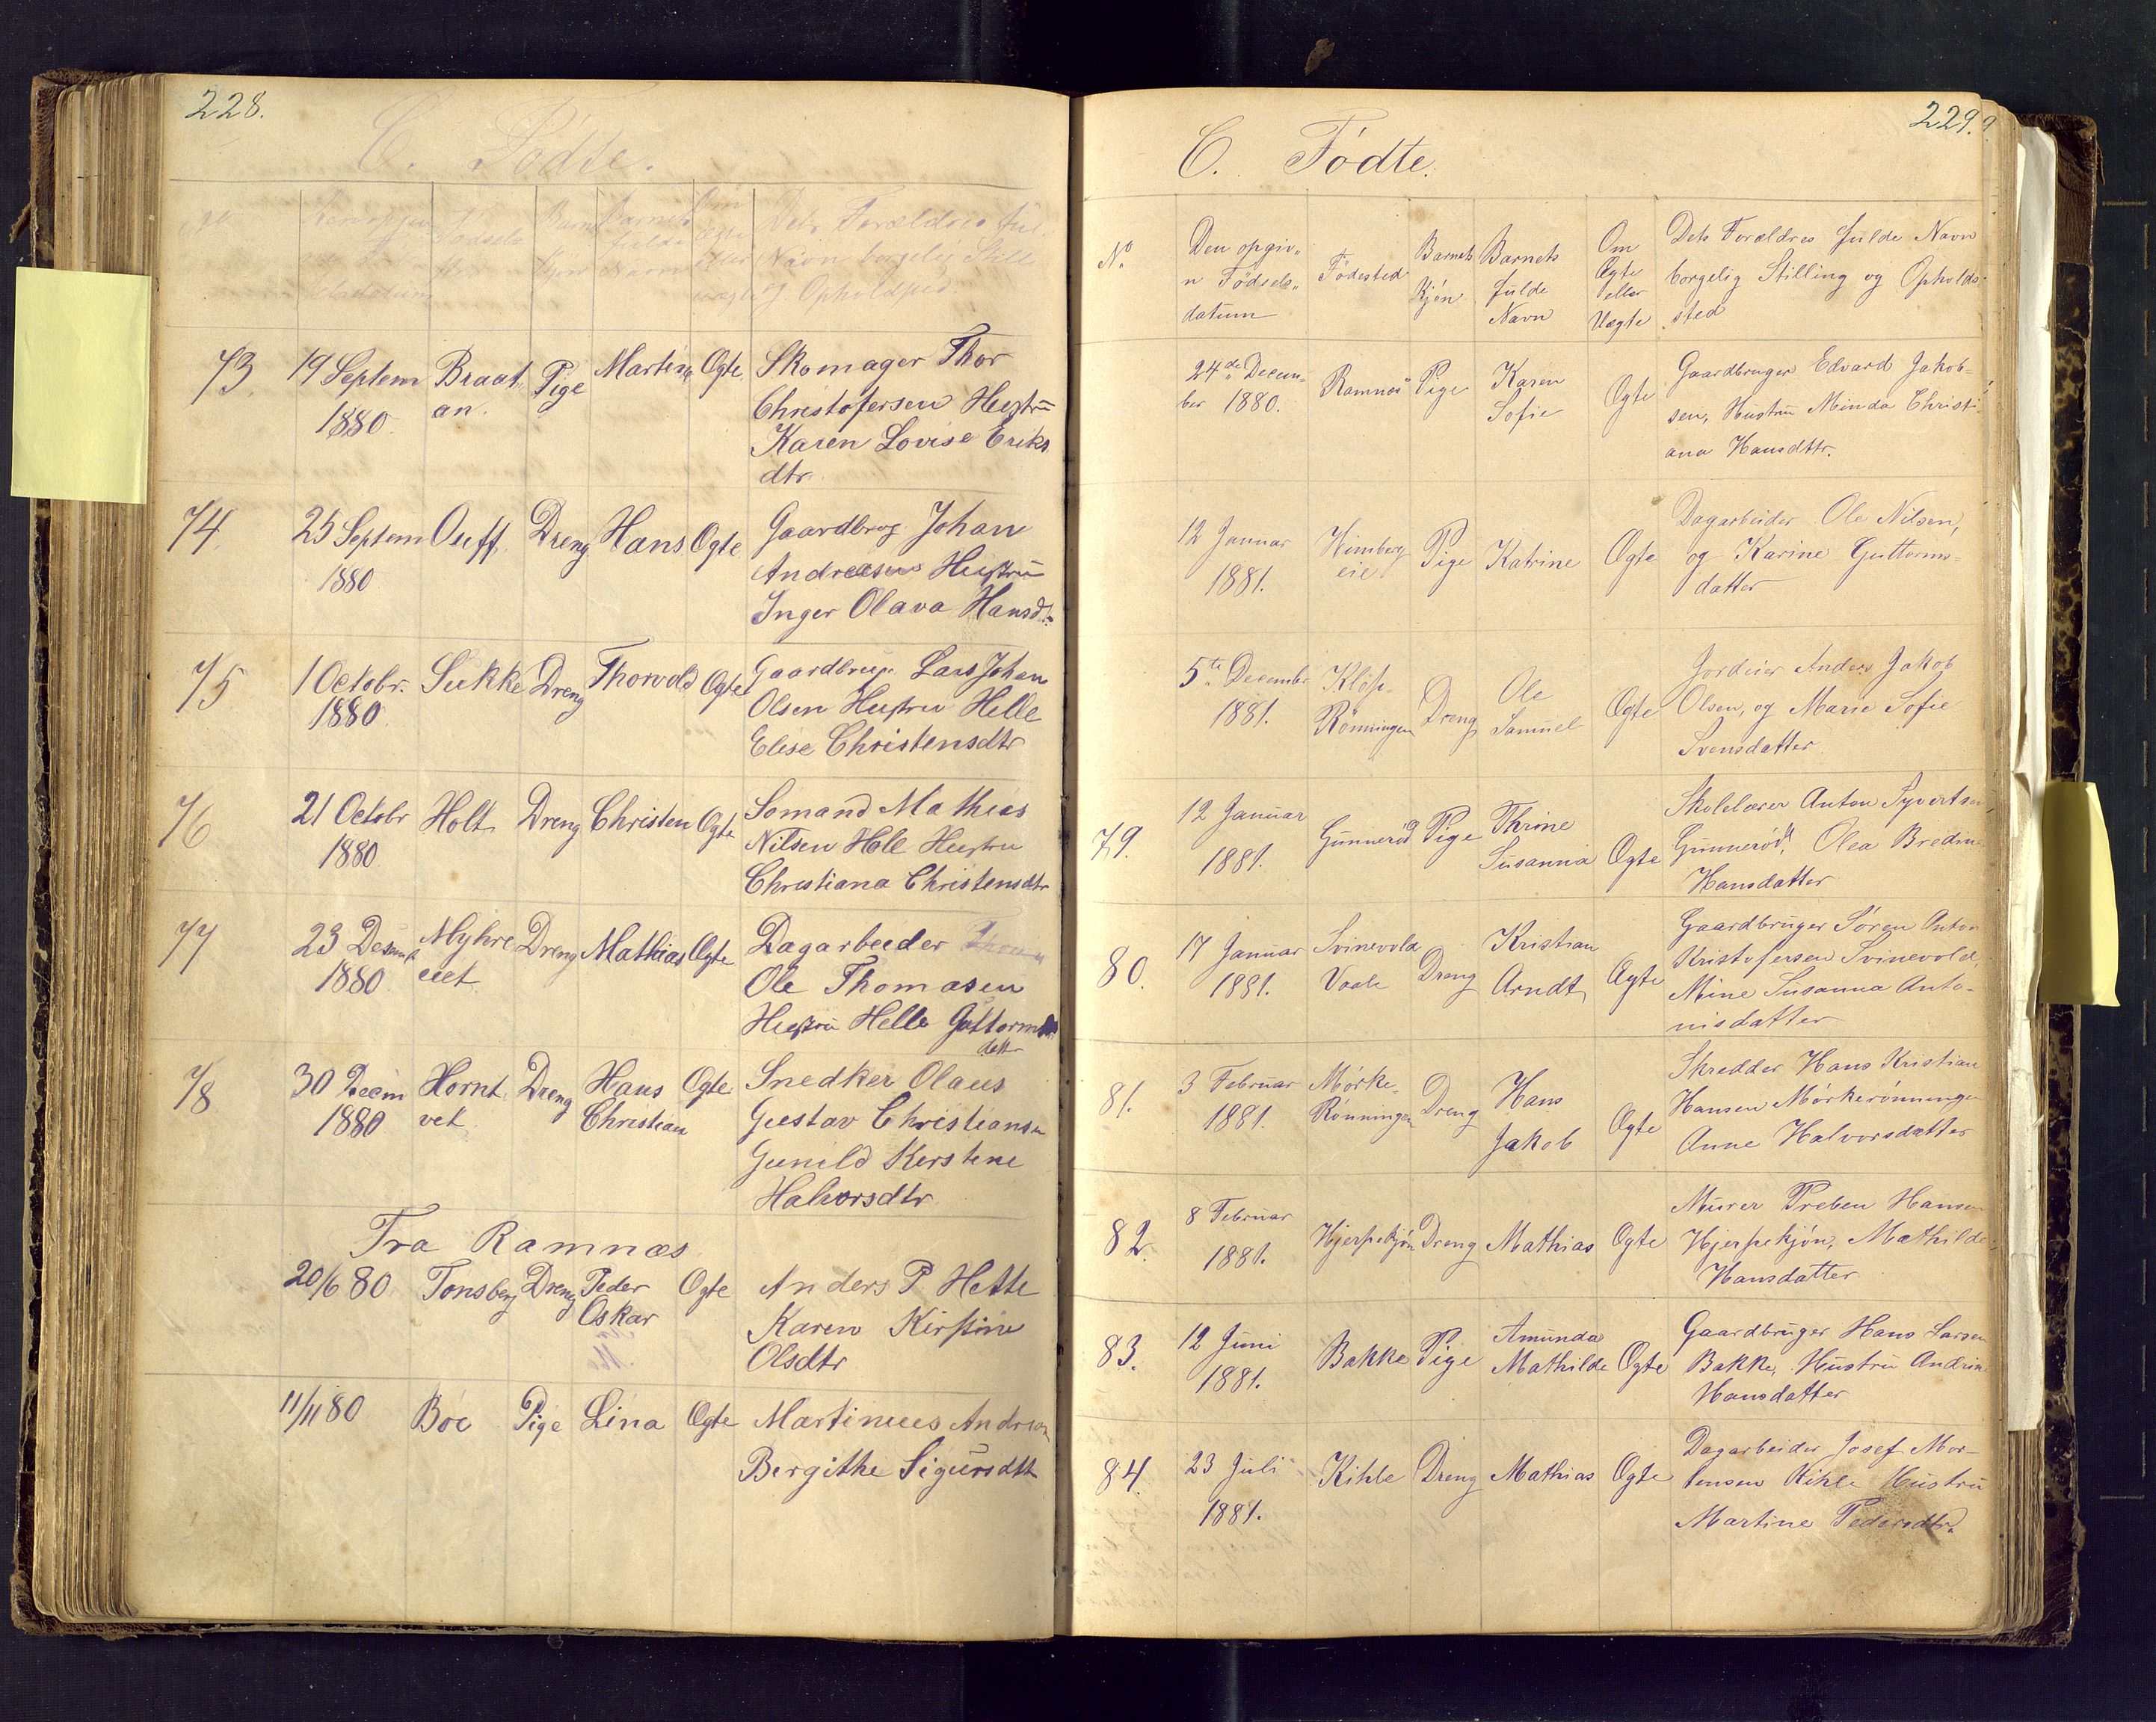 228.
C. Fødte.
No
Fødsels
Barnets fulde Navn
Dets Forældres ful
Navn borgelig Still
og Opholdsted
73. 19 Septem 1880 Braat an. Pige Martine Ogte Skomager Thor
Christofersen Hustru
Karen Lovise Eriks
dtr.
74. 25 Septem 1880 Ouff. Dreng Hans Ogte Gaardbrug Johan
Andreasen Hustru
Inger Olava Hansdtr.
75 1 Octobr. 1880 Sukke Dreng Thorvold Ogte Gaardbrug. Lars Johan
Olsen Hustru Helle
Elise Christensdtr
76 21 Octobr 1880 Holt Dreng Christen Ogte Somand Mathias
Nilsen Holt Hustru
Christiana Christensdtr
77 23 Desemb 1880 Myhre eiet Dreng Mathias Ogte Dagarbeider
Ole Thomasen
Hustru Helle Guttorms
datter
78 30 Decem 1880 Hornt vet Dreng Hans Christian Ogte Snedker Olaus
Gustav Christiansn
Gunild Kerstine
Halvorsdtr
Fra Ramnæs
20/6 80 Tonsberg Dreng Peder Oskar Ogte Anders P Hette
Karen Kirstine
Olsdtr
11/11 80 Böe Pige Lina Ogte Martinus Andresn
Bergithe Sigursdtr
229.
C. Fødte.
No Den opgiv„ n Fødsels„ datum Fødested Barnets Kjón Barnets fulde Navn Om Ogte eller Uægte Dets Forældres fulde Navn
borgelig Stilling og Opholds-
sted
24de Decem- ber 1880. Ramnæs Pige Karen Sofie Ogte Gaardbruger Edvard Jakob-
sen, Hustru Minda Christi-
ana Hansdttr.
12 Januar 1881. Kimberg eie Pige Katrine Ogte Dagarbeider Ole Nilsen,
og Karine Guttorms-
datter
5te December 1881. Klöp- Rönningen Dreng Ole Samuel Ogte Jordeier Anders Jakob
Olsen, og Marie Sofie
Svensdatter
79. 12 Januar 1881. Gunnerød Pige Thrine Susanna Ogte Skolelærer Anton Syvertsen,
Gunnerød, Olea Bredine
Hansdatter
80. 17 Januar 1881. Svinevold Vaale Dreng Kristian Arndt Ogte Gaardbruger Søren Anton
Kristofersen Svinevold,
Mine Susanna Anto-
nisdatter
81. 3 Februar 1881. Mørke- Rönningen Dreng Hans Jakob Ogte Skredder Hans Kristian
Hansen Mørkerónningen
Anne Halvorsdatter
82. 8 Februar 1881. Hjerpekjøn Dreng Mathias Ogte Murer Preben Hansen
Hjerpekjón, Mathilde
Hansdatter
83. 12 Juni 1881. Bakke Pige Amunda Mathilde Ogte Gaardbruger Hans Larsen
Bakke, Hustru Andrine
Hansdatter
84. 23 Juli 1881. Kihle Dreng Mathias Ogte Dagarbeider Josef Mor-
tensen Kihle Hustru
Martine Pedersdtr.